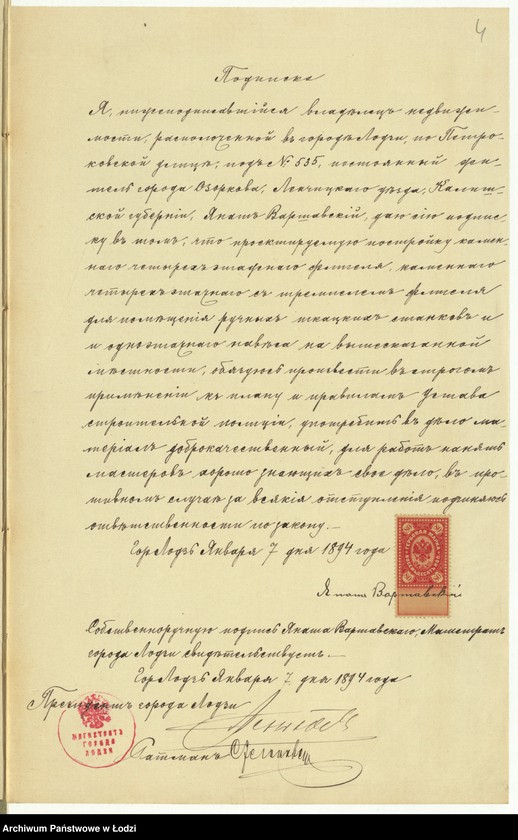 4
Подписка
Я, нижеподписавшійся владѣлецъ недвижи-
мости, расположенной въ городѣ Лодзи, по Петро-
ковской улицѣ, подъ № 535, постоянный жи-
тель города Озоркова, Ленчицкаго уѣзда, Калиш-
ской губерніи, Янашъ Варшавскій, даю сію подпис-
ку въ томъ, что проектируемую постройку камен-
наго четырехъэтажнаго флигеля, каменнаго
четырехэтажнаго съ флигеля
для помѣщенія ручныхъ ткацкихъ станковъ и
и одноэтажнаго навѣса на вышесказанной
мѣстности, обязуюсь произвести въ строгомъ
примѣненіи къ плану и правиламъ Устава
строительной полиціи, употребить въ дѣло ма-
теріалъ доброкачественный, для работъ нанять
мастеровъ хорошо знающихъ свое дѣло, въ про-
тивномъ случаѣ за всякія отступленія подчиняюсь
отвѣтственности по закону.—
Гор. Лодзь Января 7 дня 1894 года
Янашъ Варшавскій
Собственноручную подпись Янаша Варшавскаго, Магистратъ
города Лодзи свидѣтельствуетъ.—
Гор. Лодзь Января 7 дня 1894 года
Президентъ города Лодзи
МАГИСТРАТЪ
ГОРОДА
ЛОДЗИ
Archiwum Państwowe w Łodzi